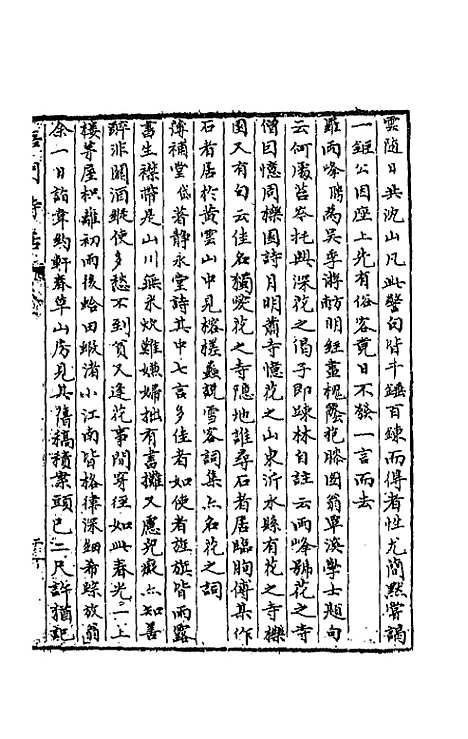 雲隨日共沈山凡此警句皆千錘百鍊而得者性尤簡默嘗謁
一鉅公因座上先有俗客竟日不發一言而去
羅兩峰聘為吳孝
廉明經畫槐蔭抱膝圖翁覃溪學士題句
云何處苔岑托興深花之偈子即疎林自註云兩峰號花之寺
僧因憶同櫟園詩月明蕭寺憶花之山東沂水縣有花之寺櫟
園又有句云佳名獨愛花之寺隱地誰尋石者居臨朐傅某作
石者居於黃雲山中見榕槎蠡說雪客詞集亦名花之詞
薄補堂岱著靜永堂詩其中七言多佳者如使者旌旗皆雨露
書生襟帶是山川無米炊難嫌婦拙有書攤又應兒癡亦如善
醉非關酒縱使多愁不到貧又逢花事間窮徑如此春光一上
樓芳屋枳離初雨後蛤田蝦渚小江南皆格律深細希踪放翁
余一日詣韋約軒春草山房見其舊稿積案頭已二尺許猶記